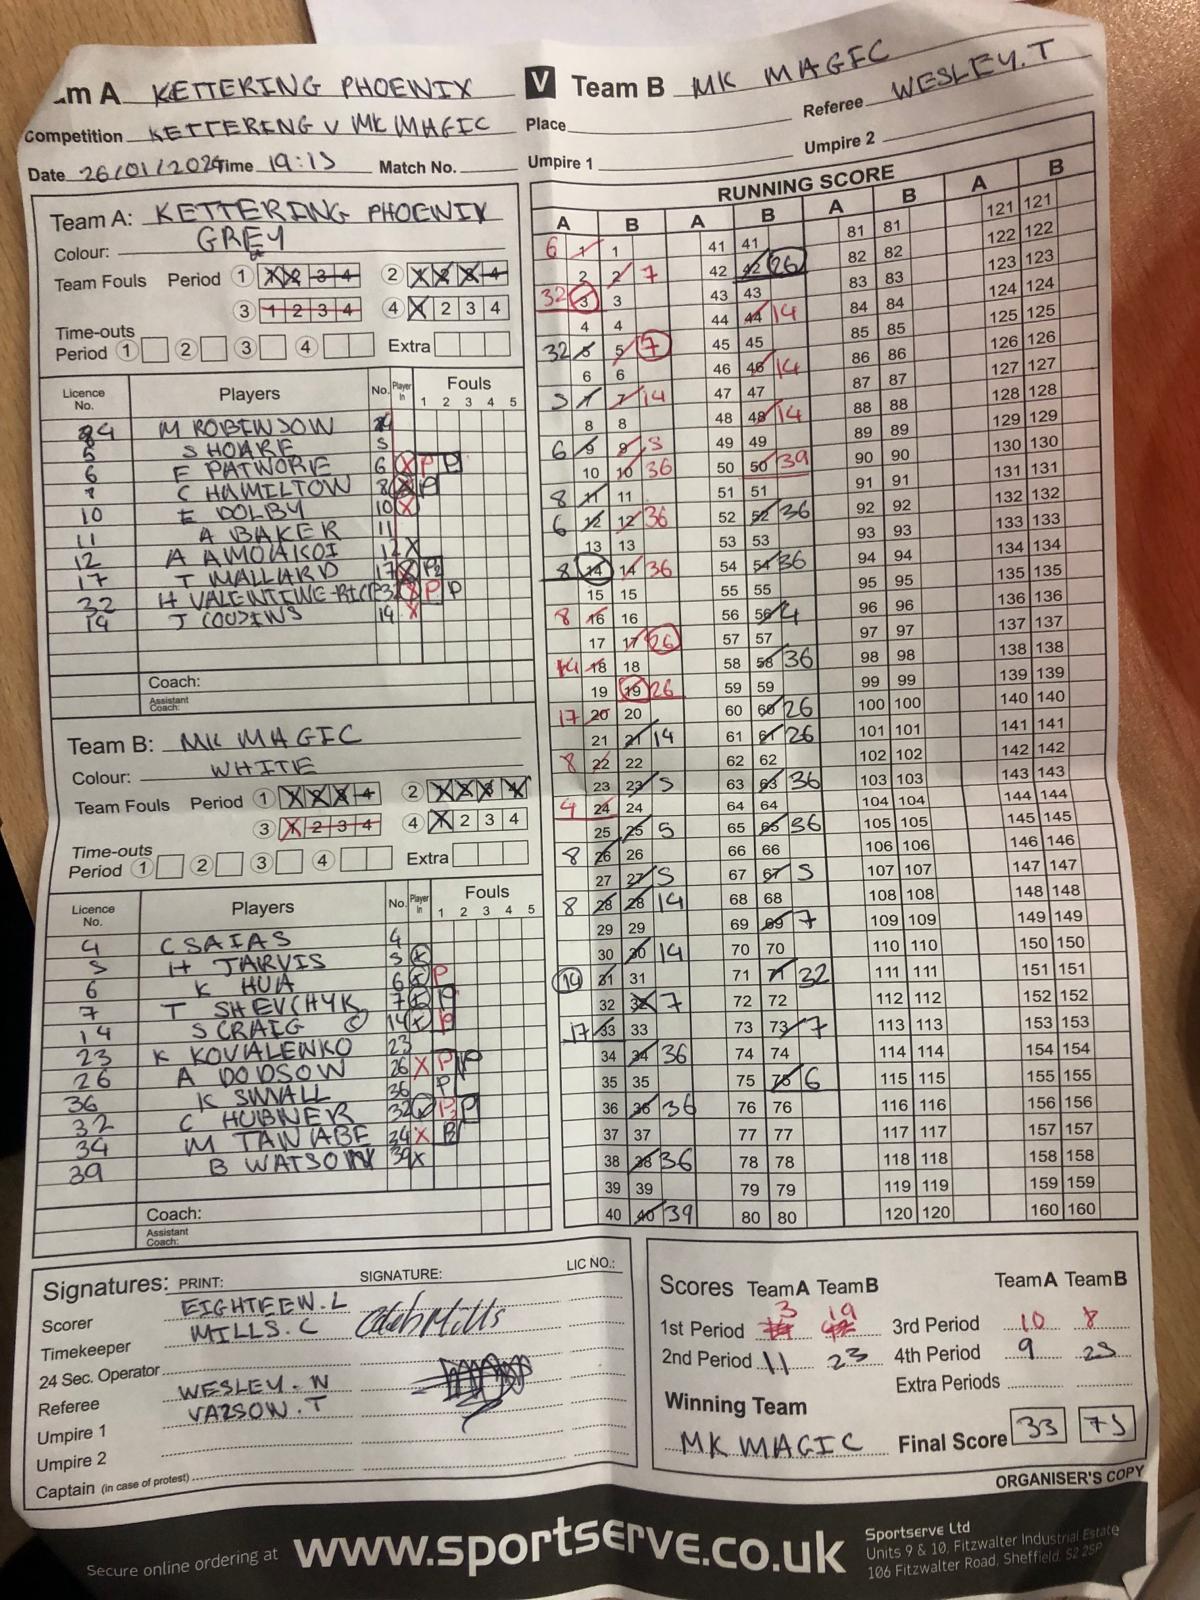 mA KETTERING PHOENIX V Team B MK MAGIC
Competition KETTERING V MK MAGIC Place Referee WESLEY.T
Date 26/01/2024 Time 19:15 Match No. Umpire 1 Umpire 2
Team A: KETTERING PHOENIX
Colour: GREY
Team Fouls Period 1 1 2 3 4 2 1 2 3 4
3 1 2 3 4 4 1 2 3 4
Time-outs
Period 1 2 3 4 Extra
Licence No. Players No. Player In Fouls
1 2 3 4 5
M ROBINSON
5 S HOARE 5
6 E PATWORIE 6 X P P
C HAMILTON 8 X P
10 E DOLBY 10 X
11 A BAKER 11
12 A AMOAKOI 12 X
17 T MALLARD 17 X P2
32 H VALENTINE-RICE 32 X P P
14 J COUSINS 14 X
Coach:
Assistant Coach:
Team B: MK MAGIC
Colour: WHITE
Team Fouls Period 1 1 2 3 4 2 1 2 3 4
3 1 2 3 4 4 1 2 3 4
Time-outs
Period 1 2 3 4 Extra
Licence No. Players No. Player In Fouls
1 2 3 4 5
4 C SAIAS 4
5 H JARVIS 5 X
6 K HUA 6 X P
7 T SHEVCHYK 7 X P
14 S CRAIG C 14 X P
23 K KOVALENKO 23
26 A DODSON 26 X P P
36 K SMALL 36 P
32 C HUBNER 32 X P P
34 M TANABE 34 X P
39 B WATSON 39 X
Coach:
Assistant Coach:
RUNNING SCORE
A B A B A B A B
6 1 1 41 41 81 81 121 121
2 2 7 42 42 26 82 82 122 122
32 3 3 43 43 83 83 123 123
4 4 44 44 14 84 84 124 124
32 5 5 7 45 45 85 85 125 125
6 6 46 46 14 86 86 126 126
5 7 7 14 47 47 87 87 127 127
8 8 48 48 14 88 88 128 128
6 9 9 5 49 49 89 89 129 129
10 10 36 50 50 39 90 90 130 130
8 11 11 51 51 91 91 131 131
6 12 12 36 52 52 36 92 92 132 132
13 13 53 53 93 93 133 133
8 14 14 36 54 54 36 94 94 134 134
15 15 55 55 95 95 135 135
8 16 16 56 56 4 96 96 136 136
17 17 26 57 57 97 97 137 137
14 18 18 58 58 36 98 98 138 138
19 19 26 59 59 99 99 139 139
17 20 20 60 60 26 100 100 140 140
21 21 14 61 61 26 101 101 141 141
8 22 22 62 62 102 102 142 142
23 23 5 63 63 36 103 103 143 143
4 24 24 64 64 104 104 144 144
25 25 5 65 65 36 105 105 145 145
8 26 26 66 66 106 106 146 146
27 27 5 67 67 5 107 107 147 147
8 28 28 14 68 68 108 108 148 148
29 29 69 69 7 109 109 149 149
30 30 14 70 70 110 110 150 150
14 31 31 71 71 32 111 111 151 151
32 32 7 72 72 112 112 152 152
17 33 33 73 73 7 113 113 153 153
34 34 36 74 74 114 114 154 154
35 35 75 75 6 115 115 155 155
36 36 36 76 76 116 116 156 156
37 37 77 77 117 117 157 157
38 38 36 78 78 118 118 158 158
39 39 79 79 119 119 159 159
40 40 39 80 80 120 120 160 160
Signatures: PRINT: SIGNATURE: LIC NO.:
Scorer EIGHTEEN.L
Timekeeper MILLS.C Caleb Mills
24 Sec. Operator
Referee WESLEY.N
Umpire 1 VATSON.T
Umpire 2
Captain (in case of protest)
Scores Team A Team B Team A Team B
1st Period 3 19 3rd Period 10 8
2nd Period 11 23 4th Period 9 25
Extra Periods
Winning Team
MK MAGIC Final Score 33 75
ORGANISER'S COPY
Secure online ordering at www.sportserve.co.uk
Sportserve Ltd
Units 9 & 10, Fitzwalter Industrial Estate
106 Fitzwalter Road, Sheffield. S2 2SP